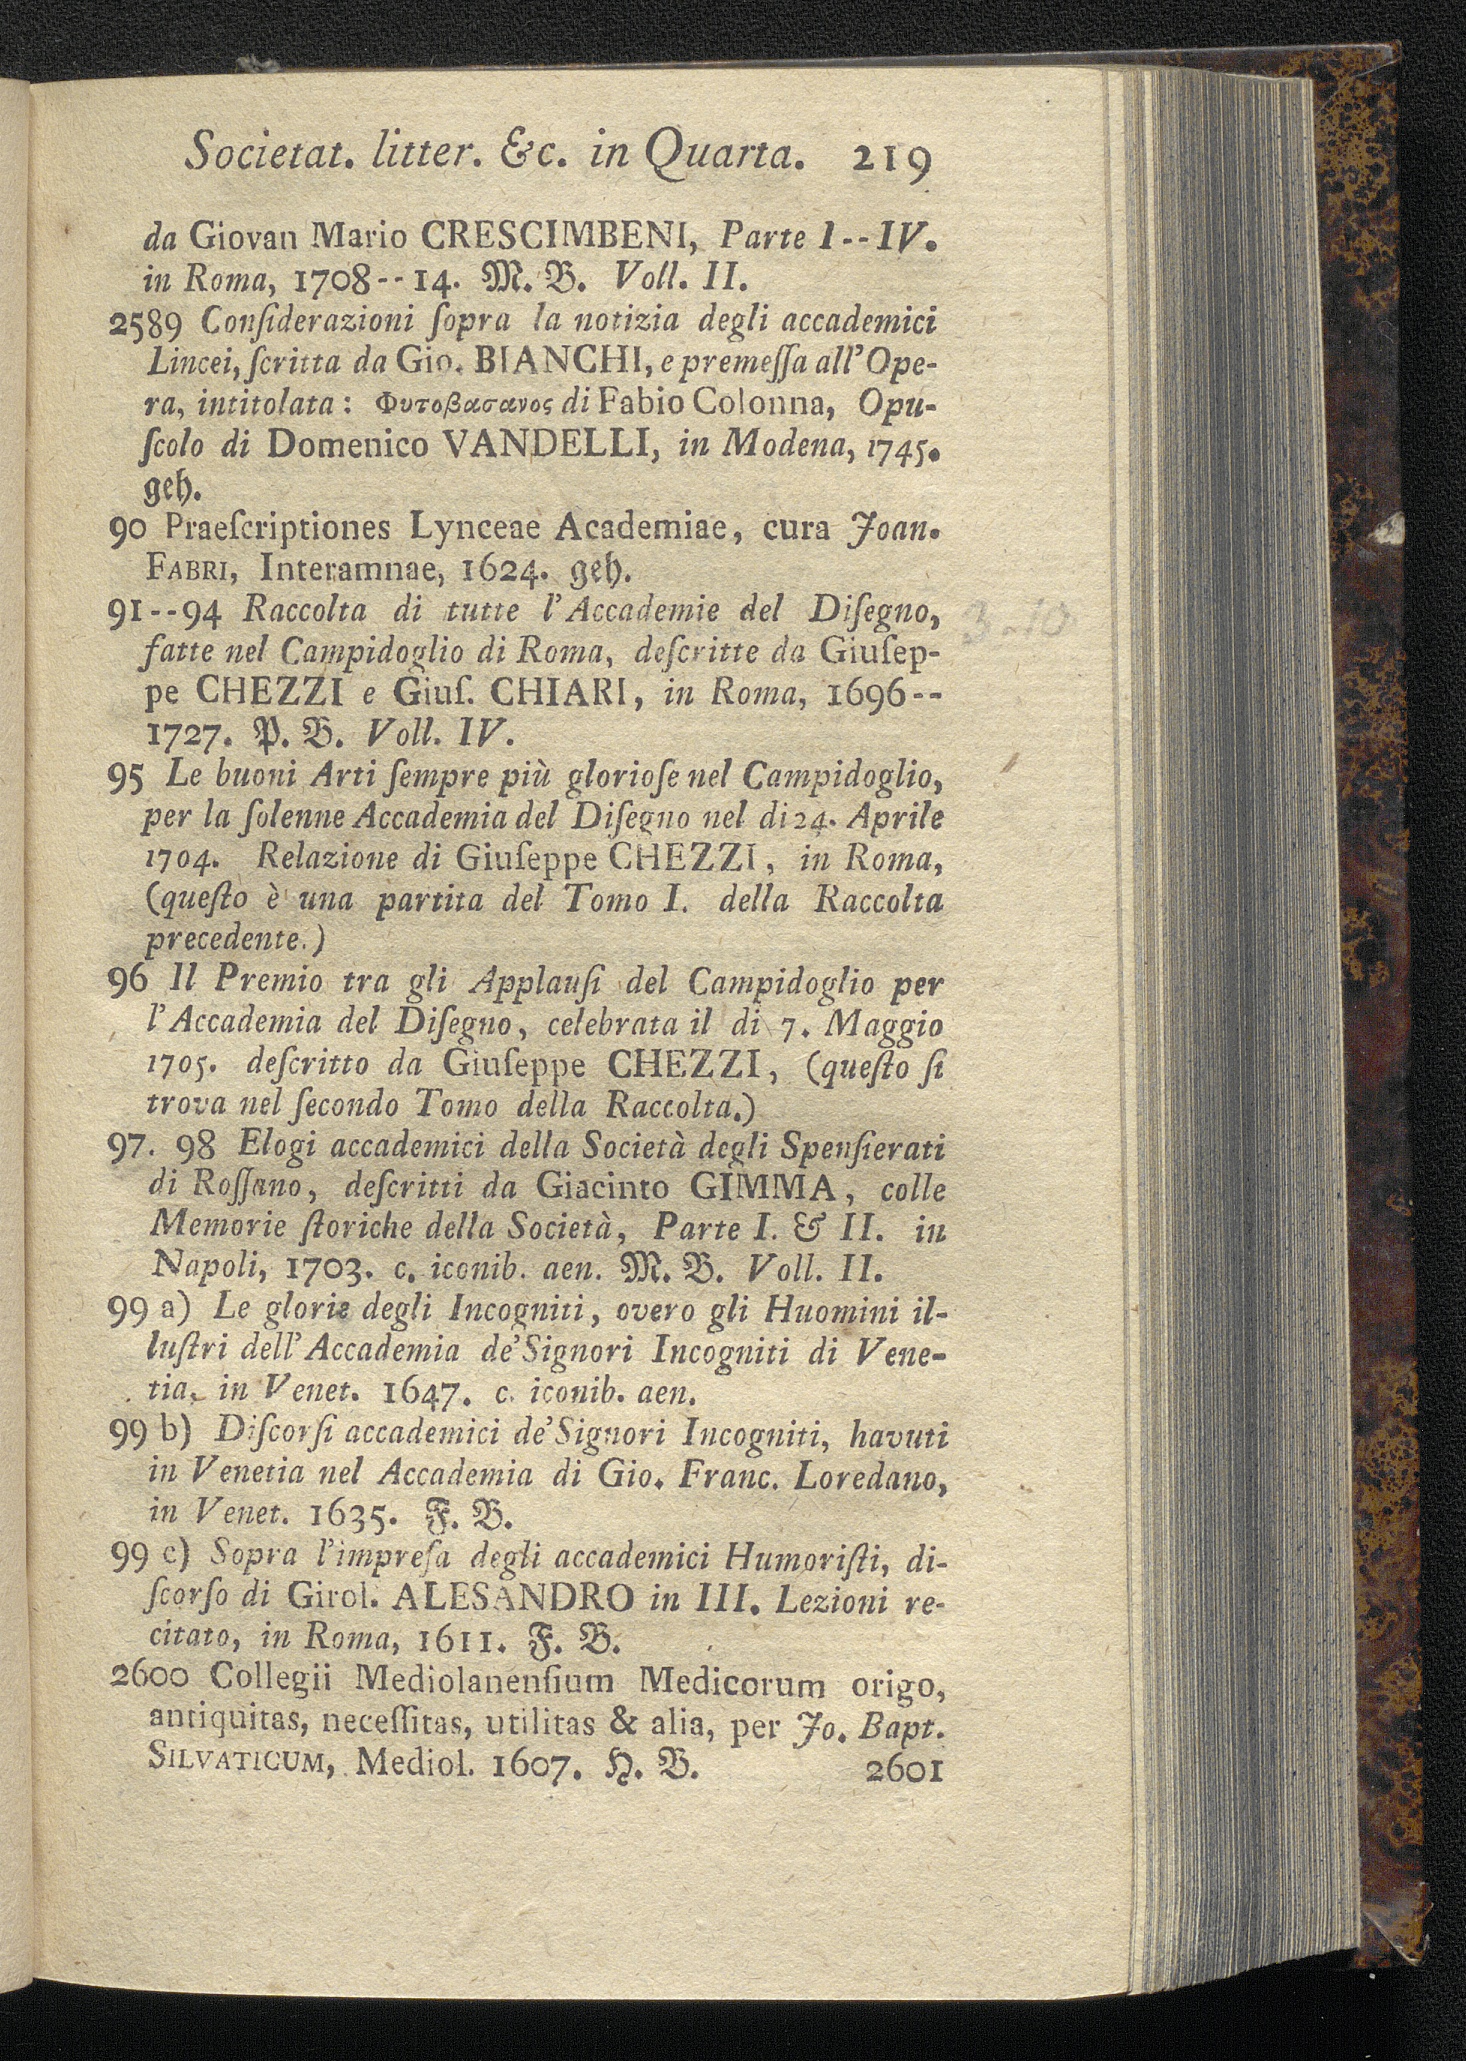 Societat. litter. &c. in Quarta. 219
da Giovan Mario CRESCIMBENI, Parte I--IV.
in Roma, 1708--14. M. B. Voll. II.
2589 Conſiderazioni ſopra la notizia degli accademici
Lincei, ſcritta da Gio. BIANCHI, e premeſſa all' Ope-
ra, intitolata: Φυτοβασανος di Fabio Colonna, Opu-
ſcolo di Domenico VANDELLI, in Modena, 1745.
geh.
90 Praeſcriptiones Lynceae Academiae, cura Joan.
FABRI, Interamnae, 1624. geh.
91--94 Raccolta di tutte l'Accademie del Diſegno,
fatte nel Campidoglio di Roma, deſcritte da Giuſep-
pe CHEZZI e Giuſ. CHIARI, in Roma, 1696--
1727. P. B. Voll. IV.
95 Le buoni Arti ſempre più glorioſe nel Campidoglio,
per la ſolenne Accademia del Diſegno nel di 24. Aprile
1704. Relazione di Giuſeppe CHEZZI, in Roma,
(queſto è una partita del Tomo I. della Raccolta
precedente.)
96 Il Premio tra gli Applauſi del Campidoglio per
l'Accademia del Diſegno, celebrata il di 7. Maggio
1705. deſcritto da Giuſeppe CHEZZI, (queſto ſi
trova nel ſecondo Tomo della Raccolta.)
97. 98 Elogi accademici della Società degli Spenſierati
di Roſſano, deſcritti da Giacinto GIMMA, colle
Memorie ſtoriche della Società, Parte I. & II. in
Napoli, 1703. c. iconib. aen. M. B. Voll. II.
99 a) Le glorie degli Incogniti, overo gli Huomini il-
luſtri dell' Accademia de' Signori Incogniti di Vene-
tia, in Venet. 1647. c. iconib. aen.
99 b) Diſcorſi accademici de' Signori Incogniti, havuti
in Venetia nel Accademia di Gio. Franc. Loredano,
in Venet. 1635. F. B.
99 c) Sopra l'impreſa degli accademici Humoriſti, di-
ſcorſo di Girol. ALESANDRO in III. Lezioni re-
citato, in Roma, 1611. F. B.
2600 Collegii Mediolanenſium Medicorum origo,
antiquitas, neceſſitas, utilitas & alia, per Jo. Bapt.
SILVATICUM, Mediol. 1607. H. B. 2601